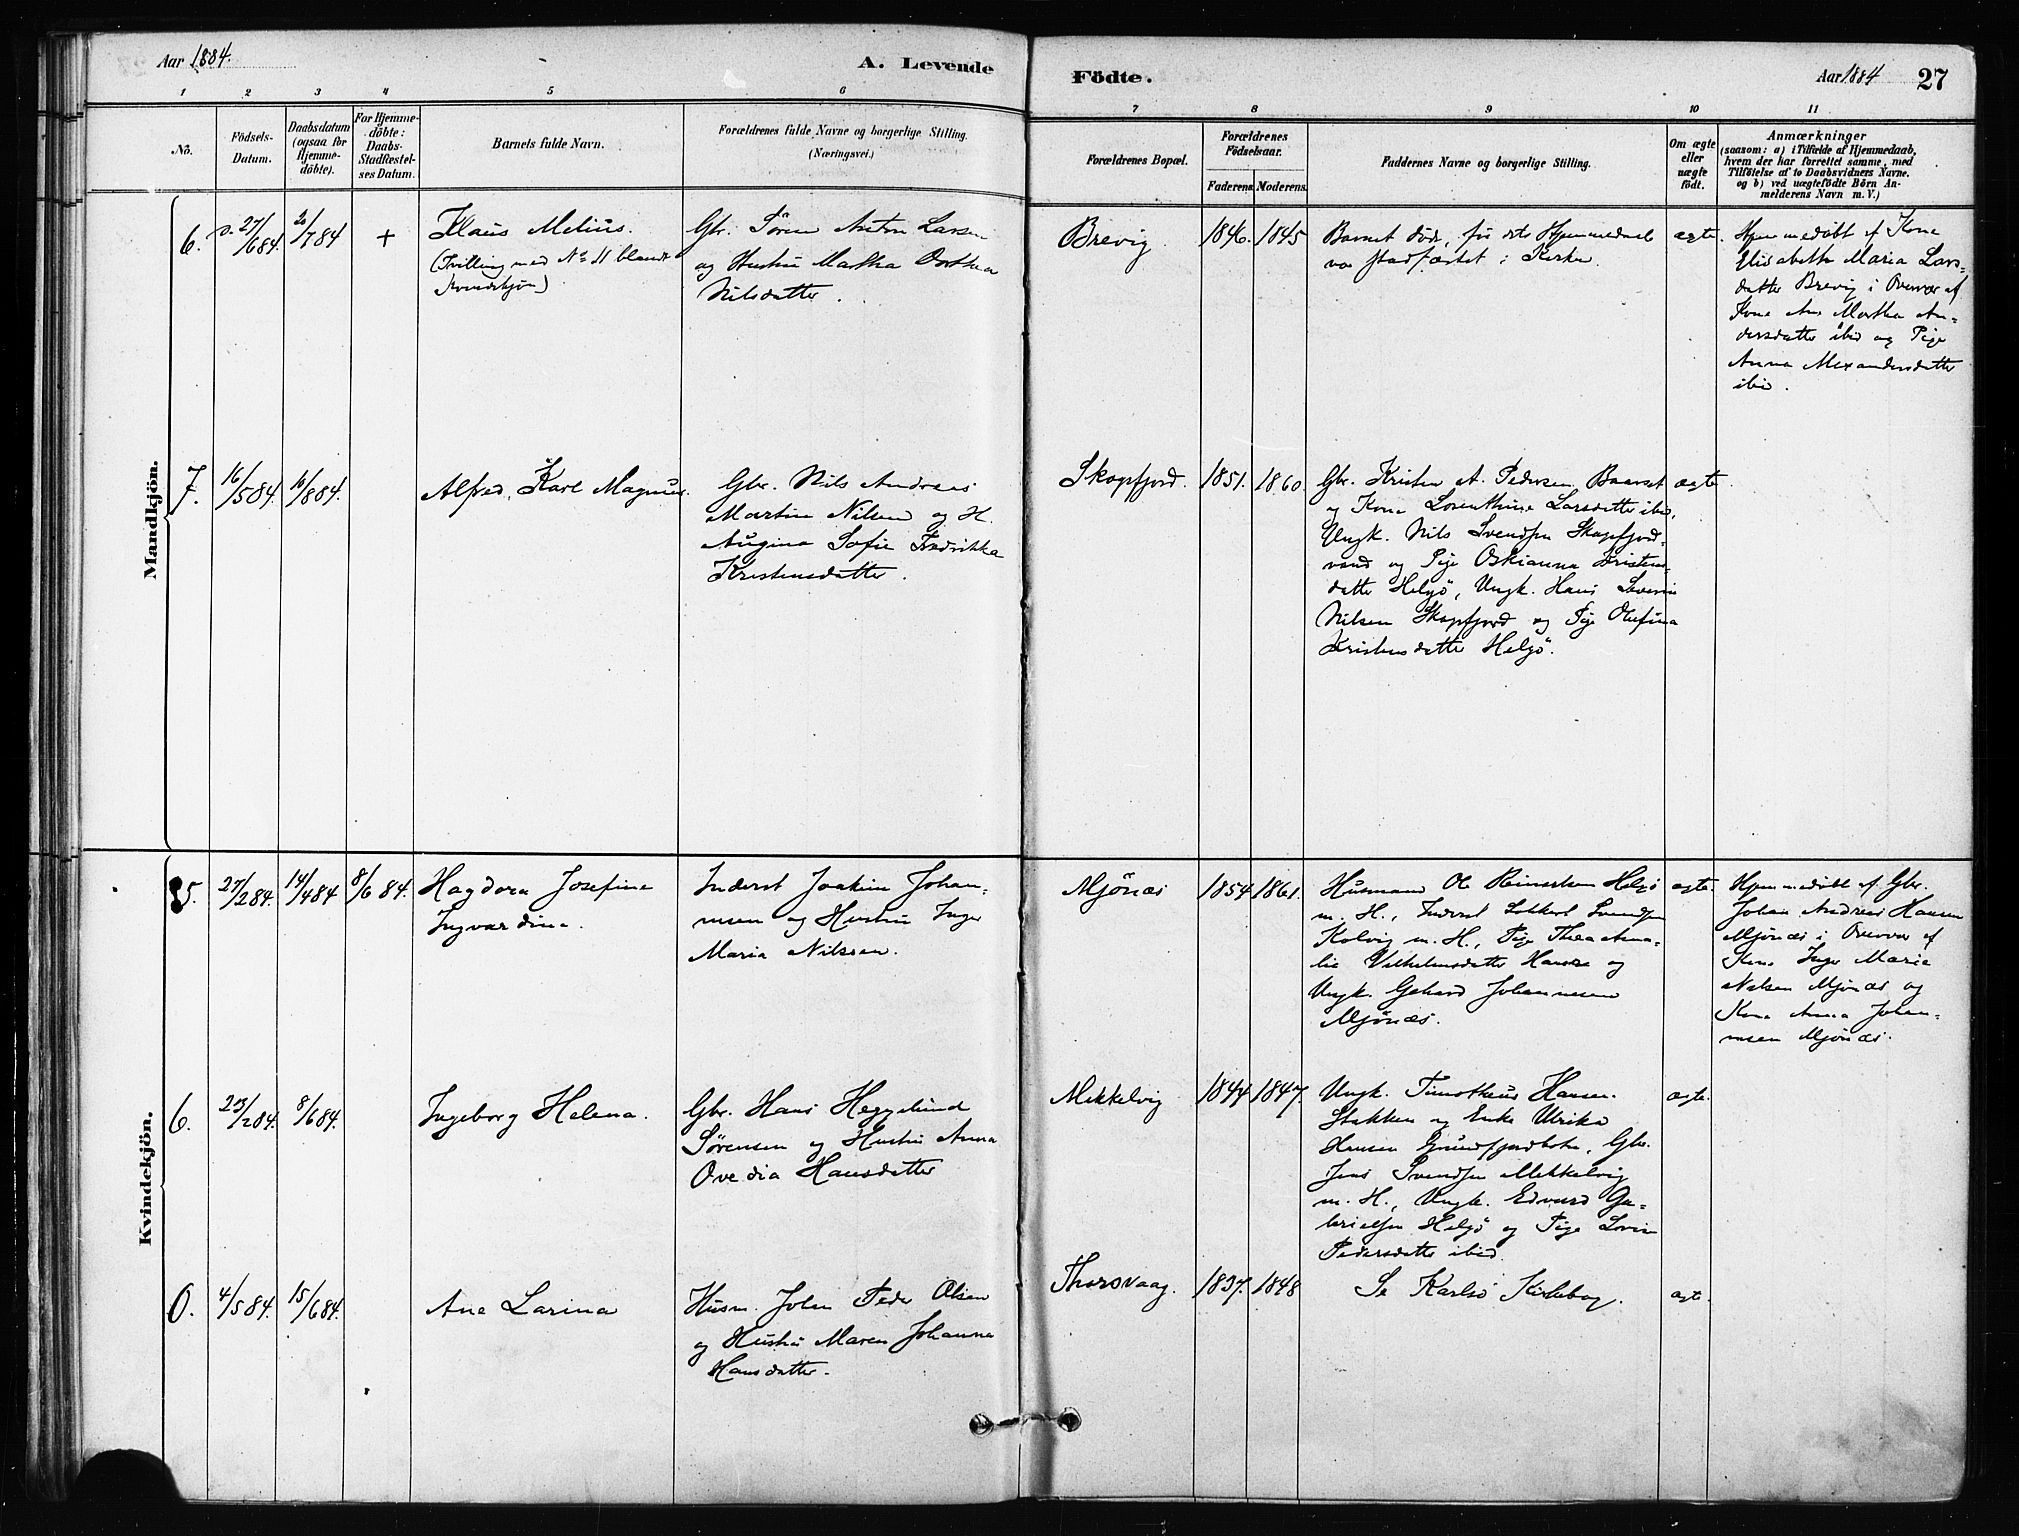 Aar 1884.
A. Levende
Födte.
Aar 1884
27
1 2 3 4 5 6 7 8 9 10 11
No.
Födsels-
Datum.
Daabsdatum
(ogsaa for
Hjemme-
döbte).
For Hjemme-
döbte:
Daabs-
Stadfæstel-
ses Datum.
Barnets fulde Navn.
Forældrenes fulde Navne og borgerlige Stilling.
(Næringsvei.)
Forældrenes Bopæl.
Forældrenes
Födselsaar.
Faderens. Moderens.
Faddernes Navne og borgerlige Stilling.
Om ægte
eller
uægte
födt.
Anmærkninger
(saasom: a) i Tilfælde af Hjemmedaab,
hvem der har forrettet samme, med
Tilföielse af to Daabsvidners Navne.
og b) ved uægtefödte Börn An-
melderens Navn m. V.)
Mandkjön.
6.
27/684
20/784
+
Klaus Melius.
(Tvilling med No 11 blandt
Kvindekjøn)
Gbr. Sören Anton Larsen
og Hustru Martha Dorthea
Nilsdatter.
Brevig.
1846. 1845
Barnet döde, för dets Hjemmedaab
var stadfæstet i Kirken.
ægte.
Hjemmedöbt af Kone
Elisabeth Maria Lars-
datter Brevig i Overvær af
Kone Ane Martha An-
dersdatter ibid og Pige
Anna Alexandersdatter
ibid.
7.
16/584.
10/884.
Alfred Karl Magnus.
Gbr. Nils Andreas
Martin Nilsen og H.
Augina Sofie Fredrikka
Kristensdatter.
Skogsfjord.
1851. 1860.
Gbr. Kristen A. Pedersen
og Kone Lorenthine Larsdatter ibid,
Ungk. Nils Svendsen Skogsfjord-
vand og Pige Oskianna Kristens-
datter Helgö, Ungk. Hans Severin
Nilsen Skogsfjord og Pige Olufina
Kristensdatter Helgö.
ægte.
Kvindekjön.
5.
27/284.
14/484
8/684.
Hagdora Josefine
Ingvardine.
Inderst Joakim Johan-
nesen og Hustru Inger
Maria Nilsen.
Mjönæs
1854 1861.
Husmand Ole Reinertsen Helgö
m. H., Inderst Lockert Svendsen
Kolvig m. H., Pige Thea Ama-
lie Vilhelmsdatter og
Ungk. Gerhard Johannesen
Mjönæs.
ægte.
Hjemmedöbt af Gbr.
Johan Andreas Hansen
Mjönæs i Overvær af
Kone Inger Marie
Nilsen Mjönæs og
Kone Anna Johan-
nesen Mjönæs.
6.
23/284.
8/684.
Ingeborg Helena.
Gbr. Hans Heggelund
Sörensen og Hustru Anna
Ovedia Hansdatter
Mikkelvig
1844 1847.
Ungk. Timotheus Hansen
Stakken og Enke Ulrika
Hansen Grundfjordbotn, Gbr.
Jens Svendsen Mikkelvig
m. H., Ungk. Edvard Ga-
brielsen Helgö og Pige Lovise
Pedersdatter ibid.
ægte.
0.
4/584.
15/684.
Ane Larina
Husm. Johan Peder Olsen
og Hustru Maren Johanna
Hansdatter.
Thorsvaag.
1837. 1848
Se Karlsö Kirkebog.
ægte.